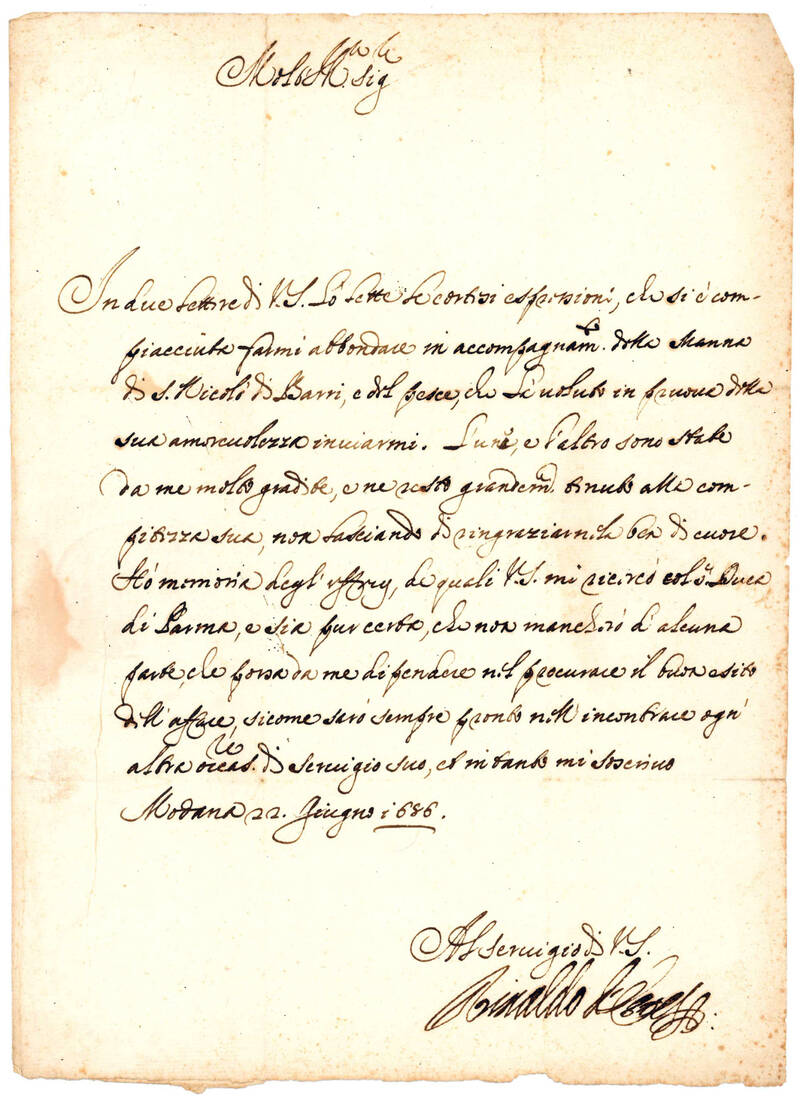 Molto Ill.re Sig.re
In due lettere di V.S. hò lette le cortesi espressioni, che si è com-
piacciuta farmi abbondare in accompagnam.to della Manna
di S. Nicolò di Barri, e del pesce, che hà voluto in pruova della
sua amorevolezza inviarmi. L'una, e l'altro sono state
da me molto gradite, e ne resto grandem.te tenuto alla com-
pitezza sua, non lasciando di ringraziarnela ben di cuore.
Hò memoria degl'uffizij, de quali V.S. mi ricercò col S.r Duca
di Parma, e sia pur certa, che non mancherò d'alcuna
parte, che possa da me dipendere nel procurare il buon esito
dell'affare, sicome sarò sempre pronto nell'incontrare ogn'
altra occas.ne di servigio suo, et in tanto mi soscrivo
Modana 22. Giugno 1686.
Al servigio di V.S.
Rinaldo d'Este